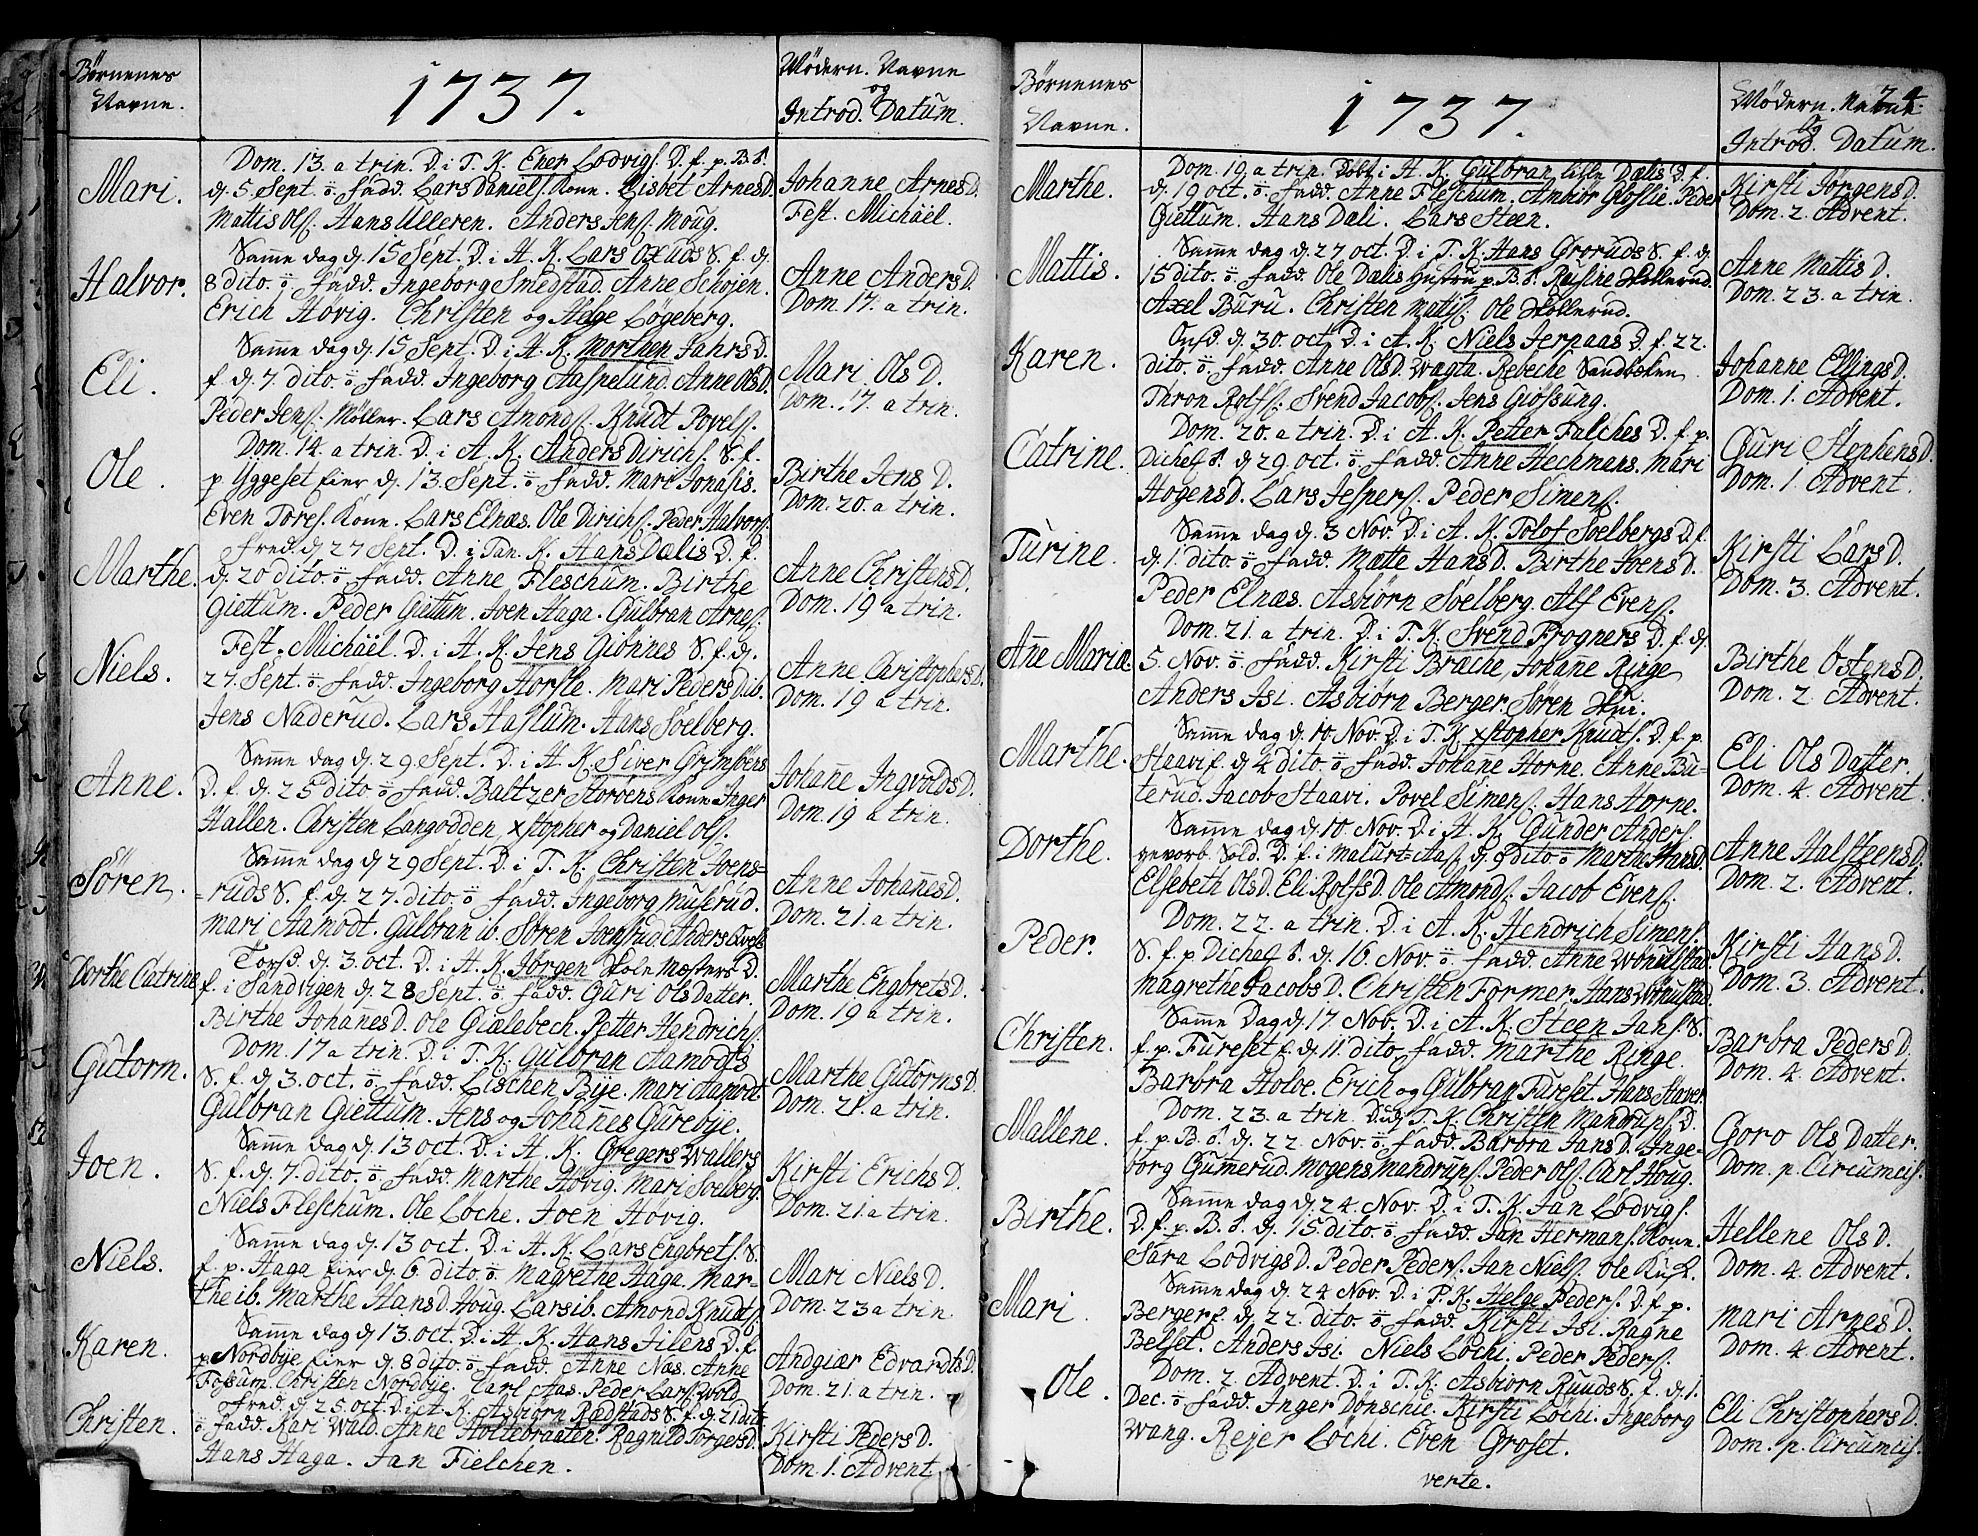 Börnenes
Navne.
1737.
Mödern. Navne
og
Introd. Datum.
Mari.
Dom. 13. a trin. D. i T. K. Ener Lodvigs. D. f. p. B. S.
d. 5. Sept. ö fadd. Lars Daniels. Kone. Lisbet Arnes D.
Mattis Ols. Hans Ulleren. Anders Jens. Moug.
Johanne Arnes D.
Fest. Michäel.
Halvor.
Samme dag d. 15 Sept. D. i A. K. Lars Oxuds S. f. d.
8 dito. ö fadd. Ingeborg Smedstad. Anne Schøjen.
Erich Høvig. Christen og Helge Løgeberg.
Anne Anders D.
Dom. 17. a trin.
Eli.
Samme dag d. 15 Sept. D. i A. K. Morthen Jahrs D.
f. d. 7. dito. ö fadd. Ingeborg Aaspelund. Anne Ols D.
Peder Jens. Møller. Lars Amonds. Knudt Povels.
Mari Ols D.
Dom. 17. a trin.
Ole.
Dom. 14. a trin. D. i A. K. Anders Dirichs. S. f.
p. Yggeset Eier d. 13. Sept. ö fadd. Mari Jonasis.
Even Tores. Kone. Lars Elnæs. Ole Dirichs. Peder Halvors.
Birthe Jens D.
Dom. 20. a trin.
Marthe.
Fred. d. 27 Sept. D. i Tan. K. Hans Dælis D. f.
d. 20 dito. ö fadd. Anne Fleschum. Birthe
Giettum. Peder Giettum. Joen Haga. Gulbran Arnes.
Anne Christens D.
Dom. 19 a trin.
Niels.
Fest. Michäel. D. i A. K. Jens Giønnes S. f. d.
27. Sept. ö fadd. Ingeborg Horsle. Mari Peders D. ib.
Jens Naderud. Lars Haslum. Hans Soelberg.
Anne Christophers D.
Dom. 19 a trin.
Anne.
Samme dag d. 29 Sept. D. i A. K. Siver Grimsbens
D. f. d. 25 dito ö fadd. Baltzer Storvens Kone Inger
Hallen. Christen Langodden, xstopher og Daniel Ols.
Johanne Ingvolds D.
Dom. 19 a trin.
Søren.
Samme dag d. 29 Sept. D. i T. K. Christen Joens-
-ruds S. f. d. 27. dito. ö fadd. Ingeborg Muserud.
Mari Aamodt. Gulbran ib. Søren Joensrud. Anders
Anne Johannes D.
Dom. 21. a trin.
Dorthe Catrine
Torsd. d. 3. oct. D. i A. K. Jørgen Skole Mesters D.
f. i Sandvigen d. 28 Sept. ö. fadd. Guri Ols Datter.
Birthe Johannes D. Ole Giælebech. Petter Hendrichs.
Marthe Engbrets D.
Dom. 19 a trin.
Gutorm.
Dom. 17 a trin. D. i T. K. Gulbran Aamodts
S. f. d. 3. oct. ö. fadd. Lischen Bije. Mari Aamodt
Gulbran Giettum. Jens og Johannes Gurebije.
Marthe Gutorms D.
Dom. 21. a trin.
Joen.
Samme dag d. 13 oct. D. i A. K. Gregers Wallers
S. f. d. 7. dito. ö fadd. Marthe Høvig. Mari Soelberg.
Niels Fleschum. Ole Løche. Joen Høvig.
Kirsti Erichs D.
Dom. 21 a trin.
Niels.
Samme dag d. 13 oct. D. i A. K. Lars Engbrets. S.
f. p. Haga Eier d. 6. dito. ö. Magrethe Haga. Mar-
the ib. Marthe Hans D. Houg. Lars ib. Amond Knudts.
Mari Niels D.
Dom. 23 a trin.
Karen.
Samme dag d. 13 oct. D. i A. K. Hans Ailens D. f.
p. Nordbije Eier d. 8 dito. ö fadd Anne Næs. Anne
Fossum. Christen Nordbije. Carl Aas. Peder Lars. Wold
Andgiær Edvardts D.
Dom. 21. a trin.
Christen.
Fred. d. 25 oct. D. i A. K. Asbiørn Rødstads S. f. d. 21 dito
ö fadd. Kari Wald. Anne Holtebraaten. Ragnild Torgers D.
Hans Haga. Jan Fielchen.
Kirsti Peders D.
Dom. 1. Advent
Börnenes
Navne.
1737.
24.
Mödern. Navne
og
Introd. Datum.
Marthe.
Dom. 19. a trin. Døbt i A. K. Gulbran lille Dælis D. f.
d. 19 oct. ö fadd. Anne Fleschum. Ambiør Gloslie. Peder
Giettum. Hans Dæli. Lars Steen.
Kirsti Jørgens D.
Dom. 2. Advent.
Mattis.
Samme dag d. 27 oct. D. i T. K. Hans Groruds S. f. d.
15 dito. ö fadd. Ole Dælis Hustru p. B. S. Skollerud.
Axel Buru. Christen Mattis. Ole Skollerud.
Anne Mattis D.
Dom. 23. a trin.
Karen.
Onsd. d. 30. oct. D. i A. K. Niels Jerpaas D. f. 22.
dito. ö. fadd. Anne Ols D. Wagta. Rebeche Sandbæken
Thron Rolfs. Svend Jacobs. Jens Giøssung.
Johanne Ellings D.
Dom. 1. Advent.
Catrine.
Dom. 20. a trin. D. i A. K. Petter Falches D. f. p.
Dichels. d. 29. oct. ö fadd. Anne Hechmans. Mari
Hogens D. Lars Jespers. Peder Simens.
Guri Stephens D.
Dom. 1. Advent.
Turine.
Samme dag d. 3 Nov. D. i A. K. Tolof Soelbergs D. f.
d. 1. dito. ö fadd. Mætte Hans D. Birthe Joens D.
Peder Elnæs. Asbiørn Soelberg. Alf Evens.
Kirsti Lars D.
Dom. 3. Advent.
Anne Maria.
Dom. 21. a trin. D. i T. K. Svend Frogners D. f. d.
5. Nov. ö. fadd. Kirsti Bræche, Johanne Ringe
Anders Isi. Asbiørn Berger. Søren Skui.
Birthe Östens D.
Dom. 2 Advent.
Marthe.
Samme dag d. 10 Nov. D. i T. K. xstopher Knudts. D. f. p.
Staavi f. d. 4 dito. ö fadd. Johanne Horne. Anne Bu-
terud. Jacob Staavi. Povel Simens. Hans Horne.
Eli Ols Datter.
Dom. 4. Advent.
Dorthe.
Samme dag d. 10 Nov. D. i A. K. Gunder Anders.
gevorb. Sold. D. f. i Malurt-Aas d. 9 dito ö Marthe Hans D.
Elsebeth Ols D. Eli Rolfs D. Ole Amonds. Jacob Evens.
Anne Halsteens D.
Dom. 2. Advent.
Peder.
Dom. 22. a trin. D. i A. K. Hendrich Simens.
S. f. p Dichels. d. 16. Nov. ö. fadd. Anne Wønulstad.
Magrethe Jacobs D. Christen Former. Hans Wønulstad.
Kirsti Hans D.
Dom. 3. Advent.
Christen.
Samme Dag d. 17. Nov. D. i A. K. Steen Jans. S.
f. p. Fureset f. d. 11. dito fadd. Marthe Ringe.
Barbra Holbe. Erich og Gulbran Fureset. Hans Staver
Barbra Peders D.
Dom. 4. Advent.
Mallene.
Dom. 23. a trin. D. udi T. K. Christen Mandrups. D.
f. p. B. S. d. 22. Nov. ö. fadd. Barbra Jans D. Inge-
borg Gumerud. Mogens Mandrups. Peder Ols. Carl Houg.
Goro Ols Datter.
Dom. p. Circumcis.
Birthe.
Samme dag d. 24. Nov. D. i T. K. Jan Lodvigs.
D. f. p. B. S. d. 15 dito. ö fadd. Jan Hermans. Kone.
Sara Lodvigs D. Peder Peders. Jan Niels. Ole
Hellene Ols D.
Dom. 4. Advent.
Mari.
Samme dag d. 24 Nov. D. i T. K. Helge Peders. D. f. p.
Berger f. d. 22. dito. ö fadd. Kirsti Isi. Ragne
Belset. Anders Isi. Niels Løchi. Peder Peders.
Mari Arnes D.
Dom. 4. Advent.
Ole.
Dom. 2 Advent. D. i T. K. Asbiørn Ruuds S. f. d. 1.
Dec. ö fadd. Inger Dønschie. Kirsti Løchi. Ingeborg
Wang. Rejer Løchi. Even Groset.
Eli Christophers D.
Dom. p. Circumcis.
verte.